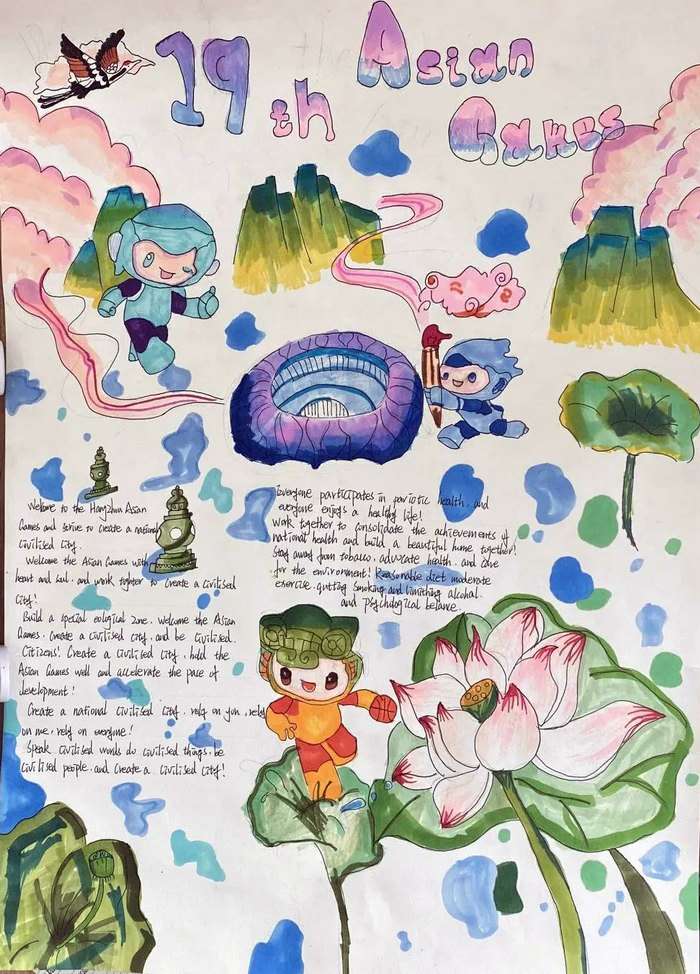 19th Asian
Games
Welcome to the Hangzhou Asian
Games and strive to create a national
Civilised City.
Welcome the Asian Games with
heart and soul, and work togther to create a civilised
City!
Build a special eological zone. Welcome the Asian
Games. Create a civilised city, and be civilised.
Citizens! Create a civilised city, hold the
Asian Games well and accelerate the pace of
development!
Create a national civilised city, rely on you, rely
on me, rely on everyone!
Speak civilised words do civilised things, be
civilised people, and create a civilised city!
Everyone participates in pariotic health, and
everyone enjoys a healthy life!
Work together to consolidate the achievements of
national health and build a beautiful home together!
Stay away from tobacco, advocate health, and care
for the environment! Reasonable diet moderate
exercise, qutting smoking and limithing alcohal.
and psychological balance.